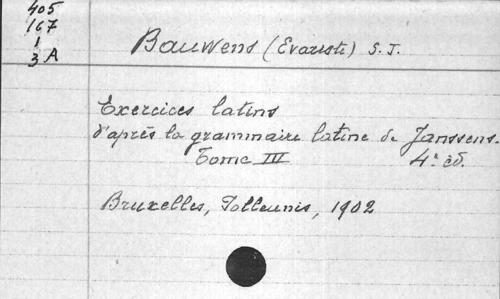 405
167
1
3 A
Bauwens (Evariste) S. J.
Exercices latins
d'après la grammaire latine de Janssens.
Tome III 4e éd.
Bruxelles, Polleunis, 1902